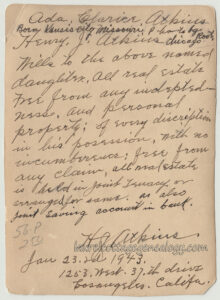 Ada, Clarice, Atkins
Born Kansas city Missouri, P hoto by
Henry, J. Atkins Chicago
Wills to the above named
daughter, all real estate
free from any indebted-
ness, and personal
property; of every discription
in his posession, with no
incumberence; free from
any claim, all real estate
is held in joint tenancy or
arranged for same. as also
joint saving account in bank.
H. J. Atkins.
Jan 23.rd 1943.
1253, West. 37th drive
Los angeles. Califa.